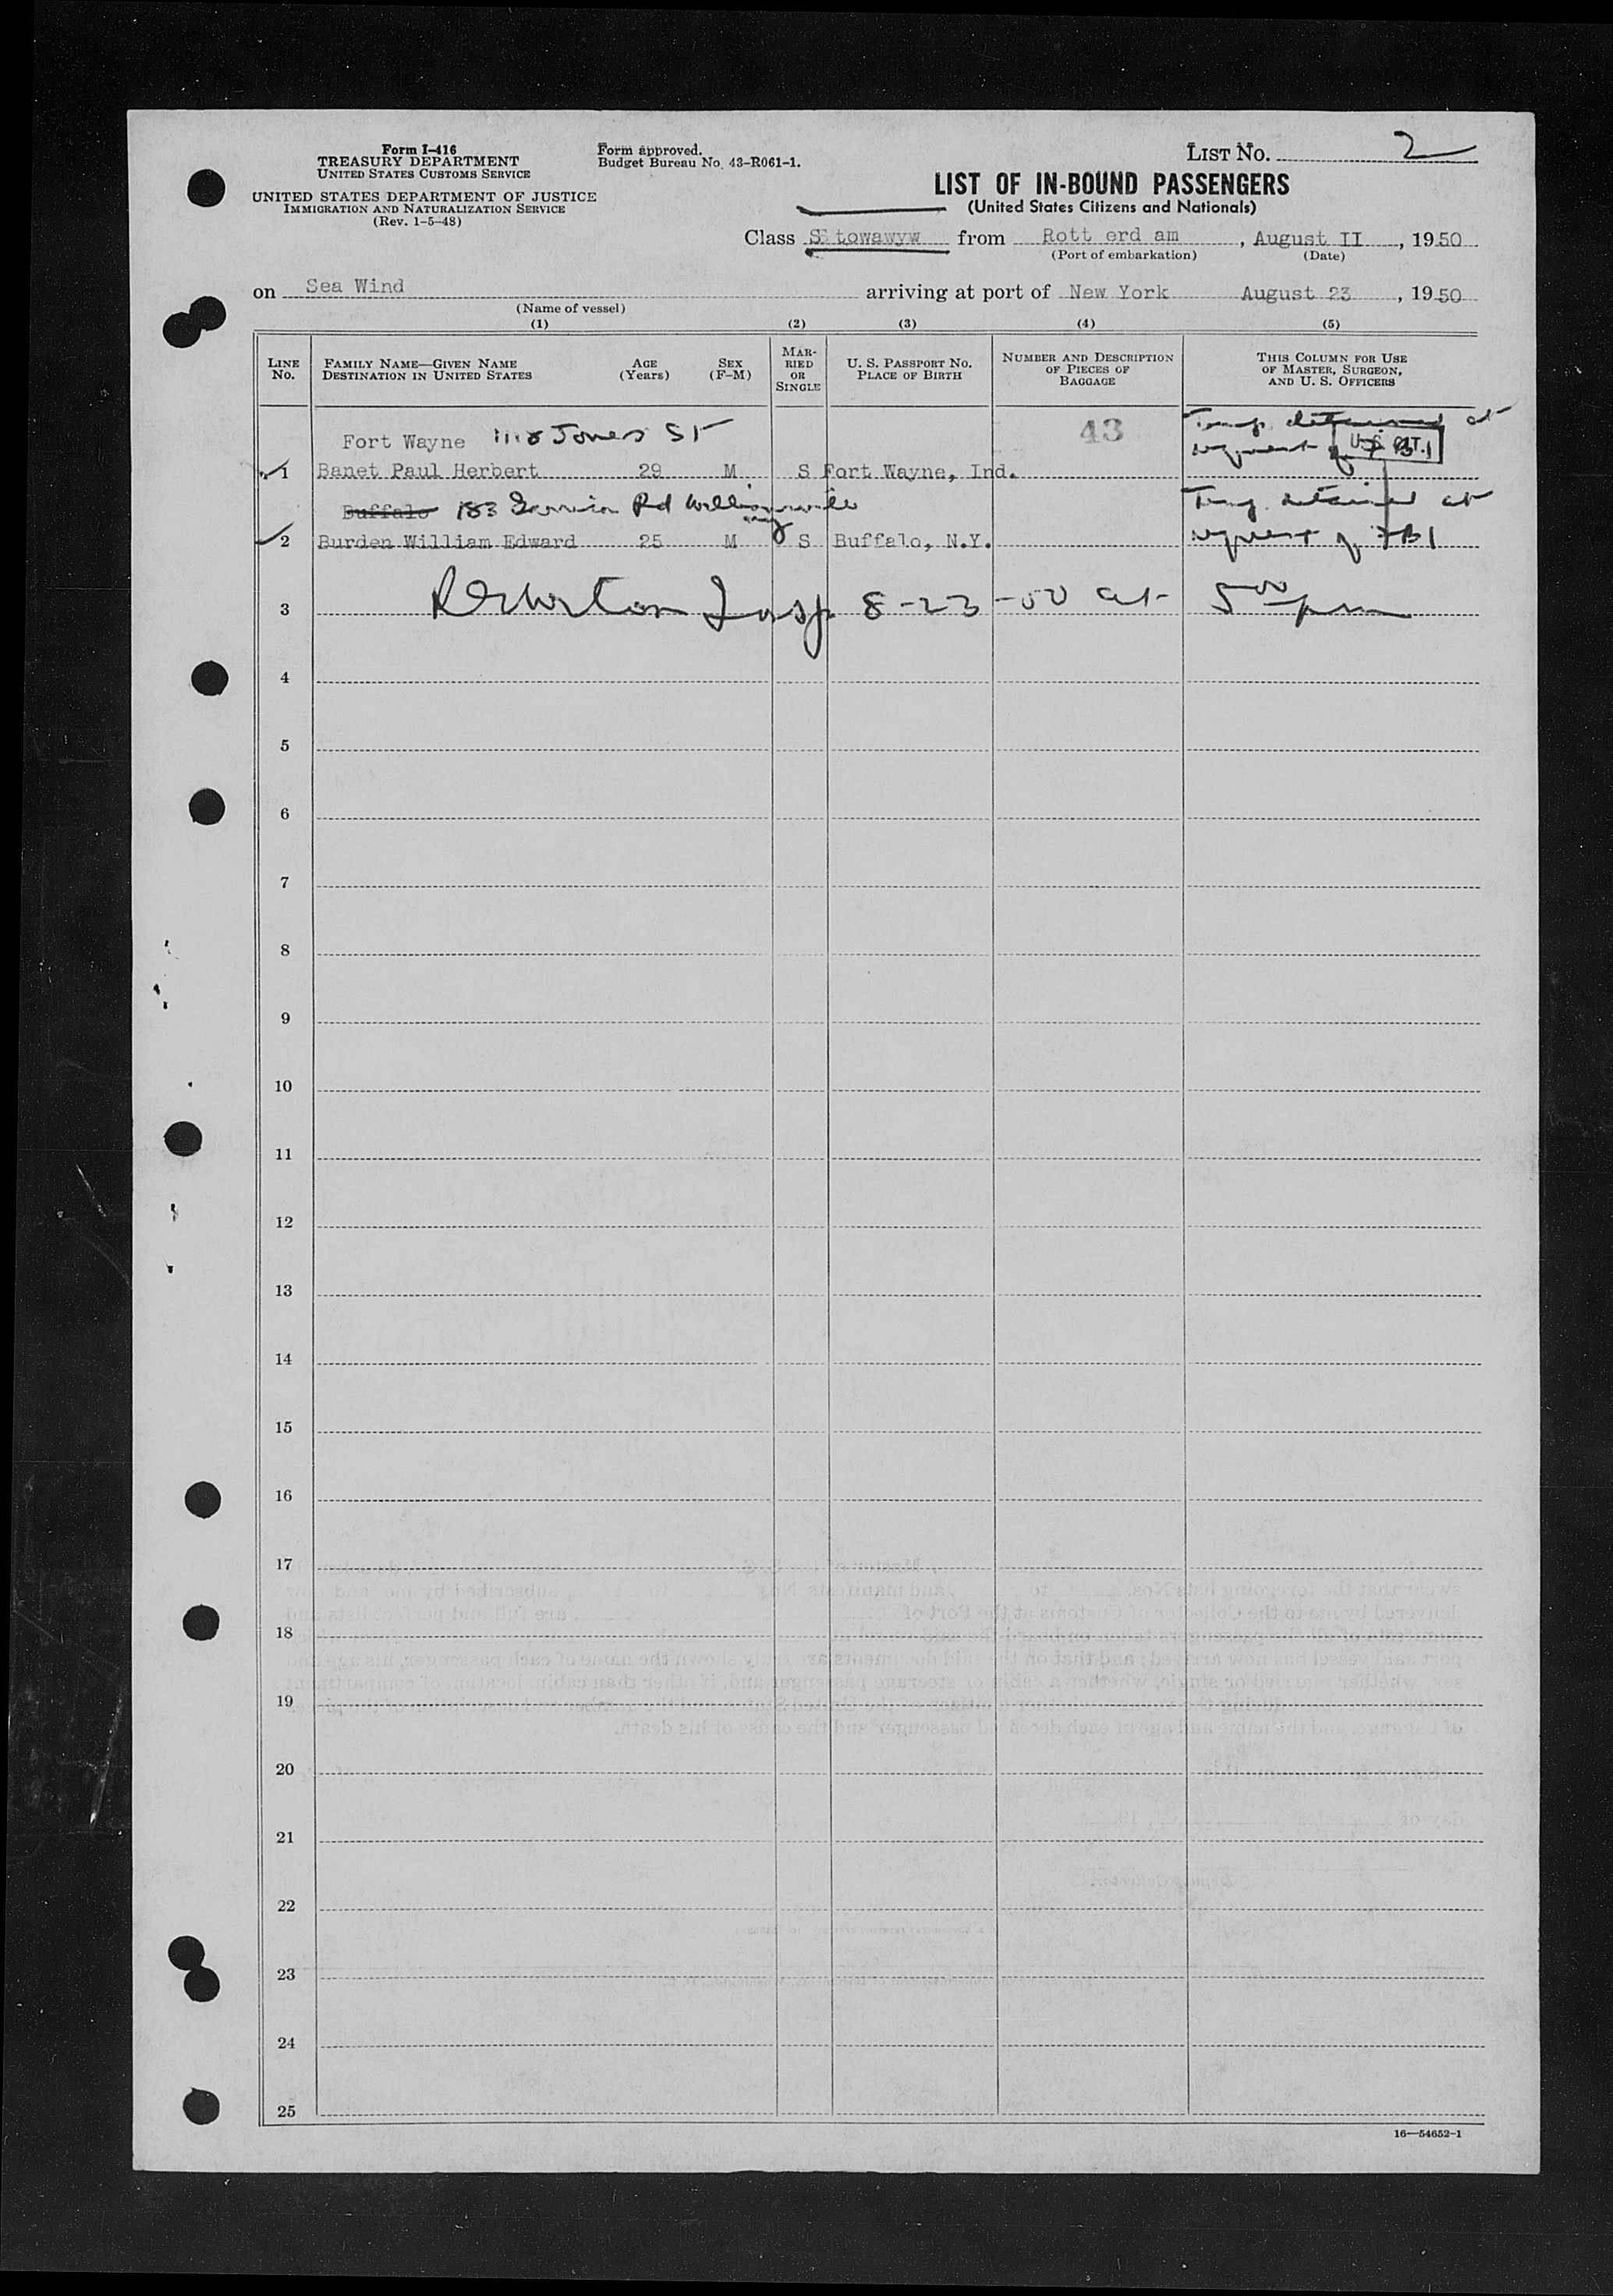 Form I-416
TREASURY DEPARTMENT
UNITED STATES CUSTOMS SERVICE
UNITED STATES DEPARTMENT OF JUSTICE
IMMIGRATION AND NATURALIZATION SERVICE
(Rev. 1-5-48)
Form approved.
Budget Bureau No. 43-R061-1.
LIST NO. 2
LIST OF IN-BOUND PASSENGERS
(United States Citizens and Nationals)
Class Sttowawyw from Rott erd am, August II, 1950
(Port of embarkation) (Date)
on Sea Wind arriving at port of New York August 23, 1950
(Name of vessel)
(1) (2) (3) (4) (5)
LINE NO. FAMILY NAME—GIVEN NAME DESTINATION IN UNITED STATES AGE (Years) SEX (F-M) MARRIED OR SINGLE U. S. PASSPORT NO. PLACE OF BIRTH NUMBER AND DESCRIPTION OF PIECES OF BAGGAGE THIS COLUMN FOR USE OF MASTER, SURGEON, AND U. S. OFFICERS
Fort Wayne 1118 Jones St 43 Temp. detained at
1 Banet Paul Herbert 29 M S Fort Wayne, Ind. request of FBI U.S. CIT.
Buffalo 183 Rd Williamsville Temp. detained at
2 Burden William Edward 25 M S Buffalo, N.Y. request of FBI
3 Insp 8-23-50 at 5 00 pm
4
5
6
7
8
9
10
11
12
13
14
15
16
17
18
19
20
21
22
23
24
25
16—54652-1